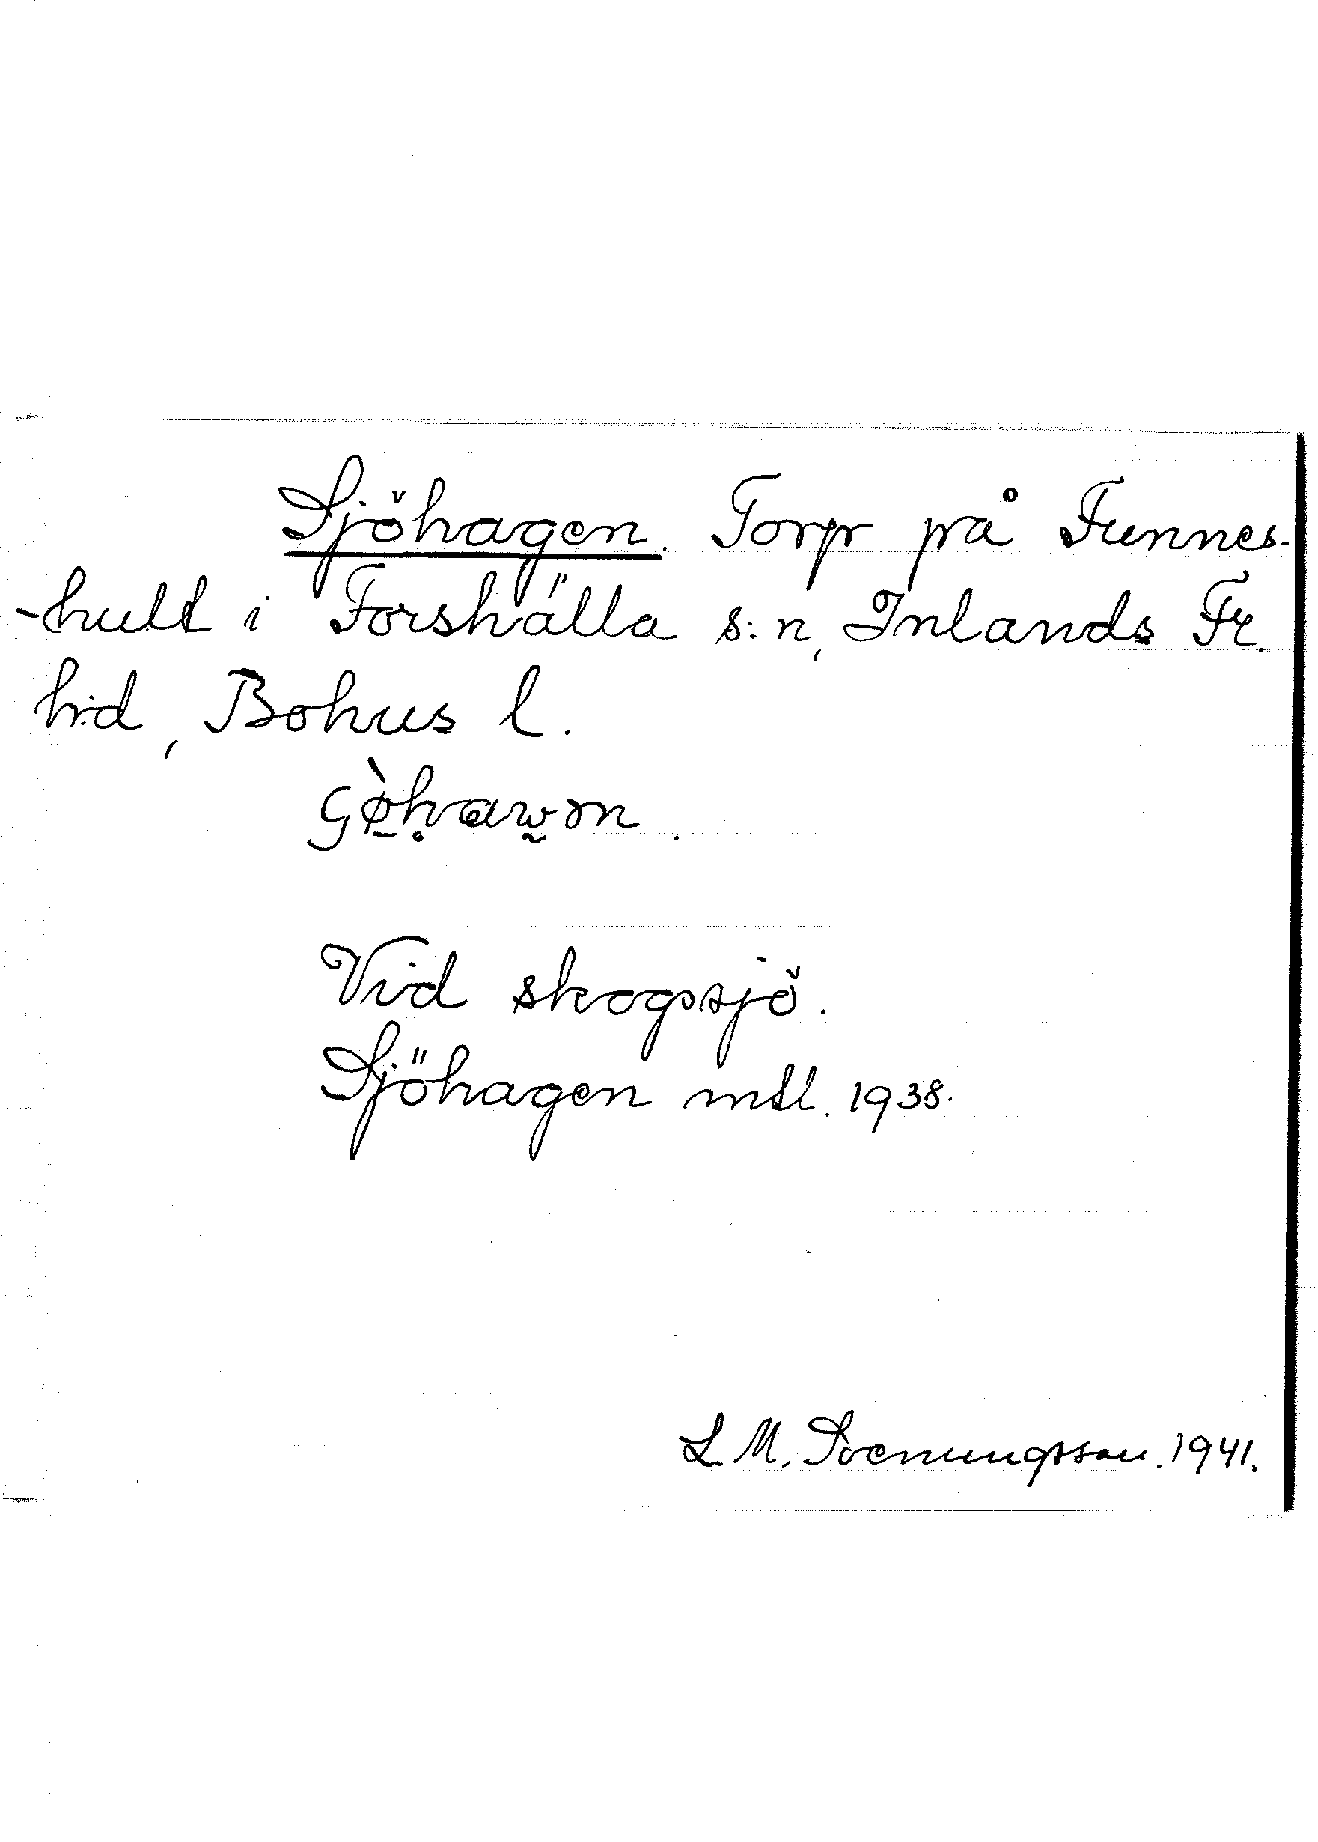 Sjöhagen. Torp på Funnes-
-hult i Forshälla s:n, Inlands Fr.
h:d, Bohus l.
Vid skogssjö.
Sjöhagen mtl. 1938.
L M. Svenungsson. 1941.